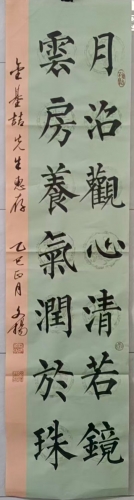 月沼觀心清若鏡
雲房養氣潤於珠
金基喆先生惠存 乙巳正月 文楊